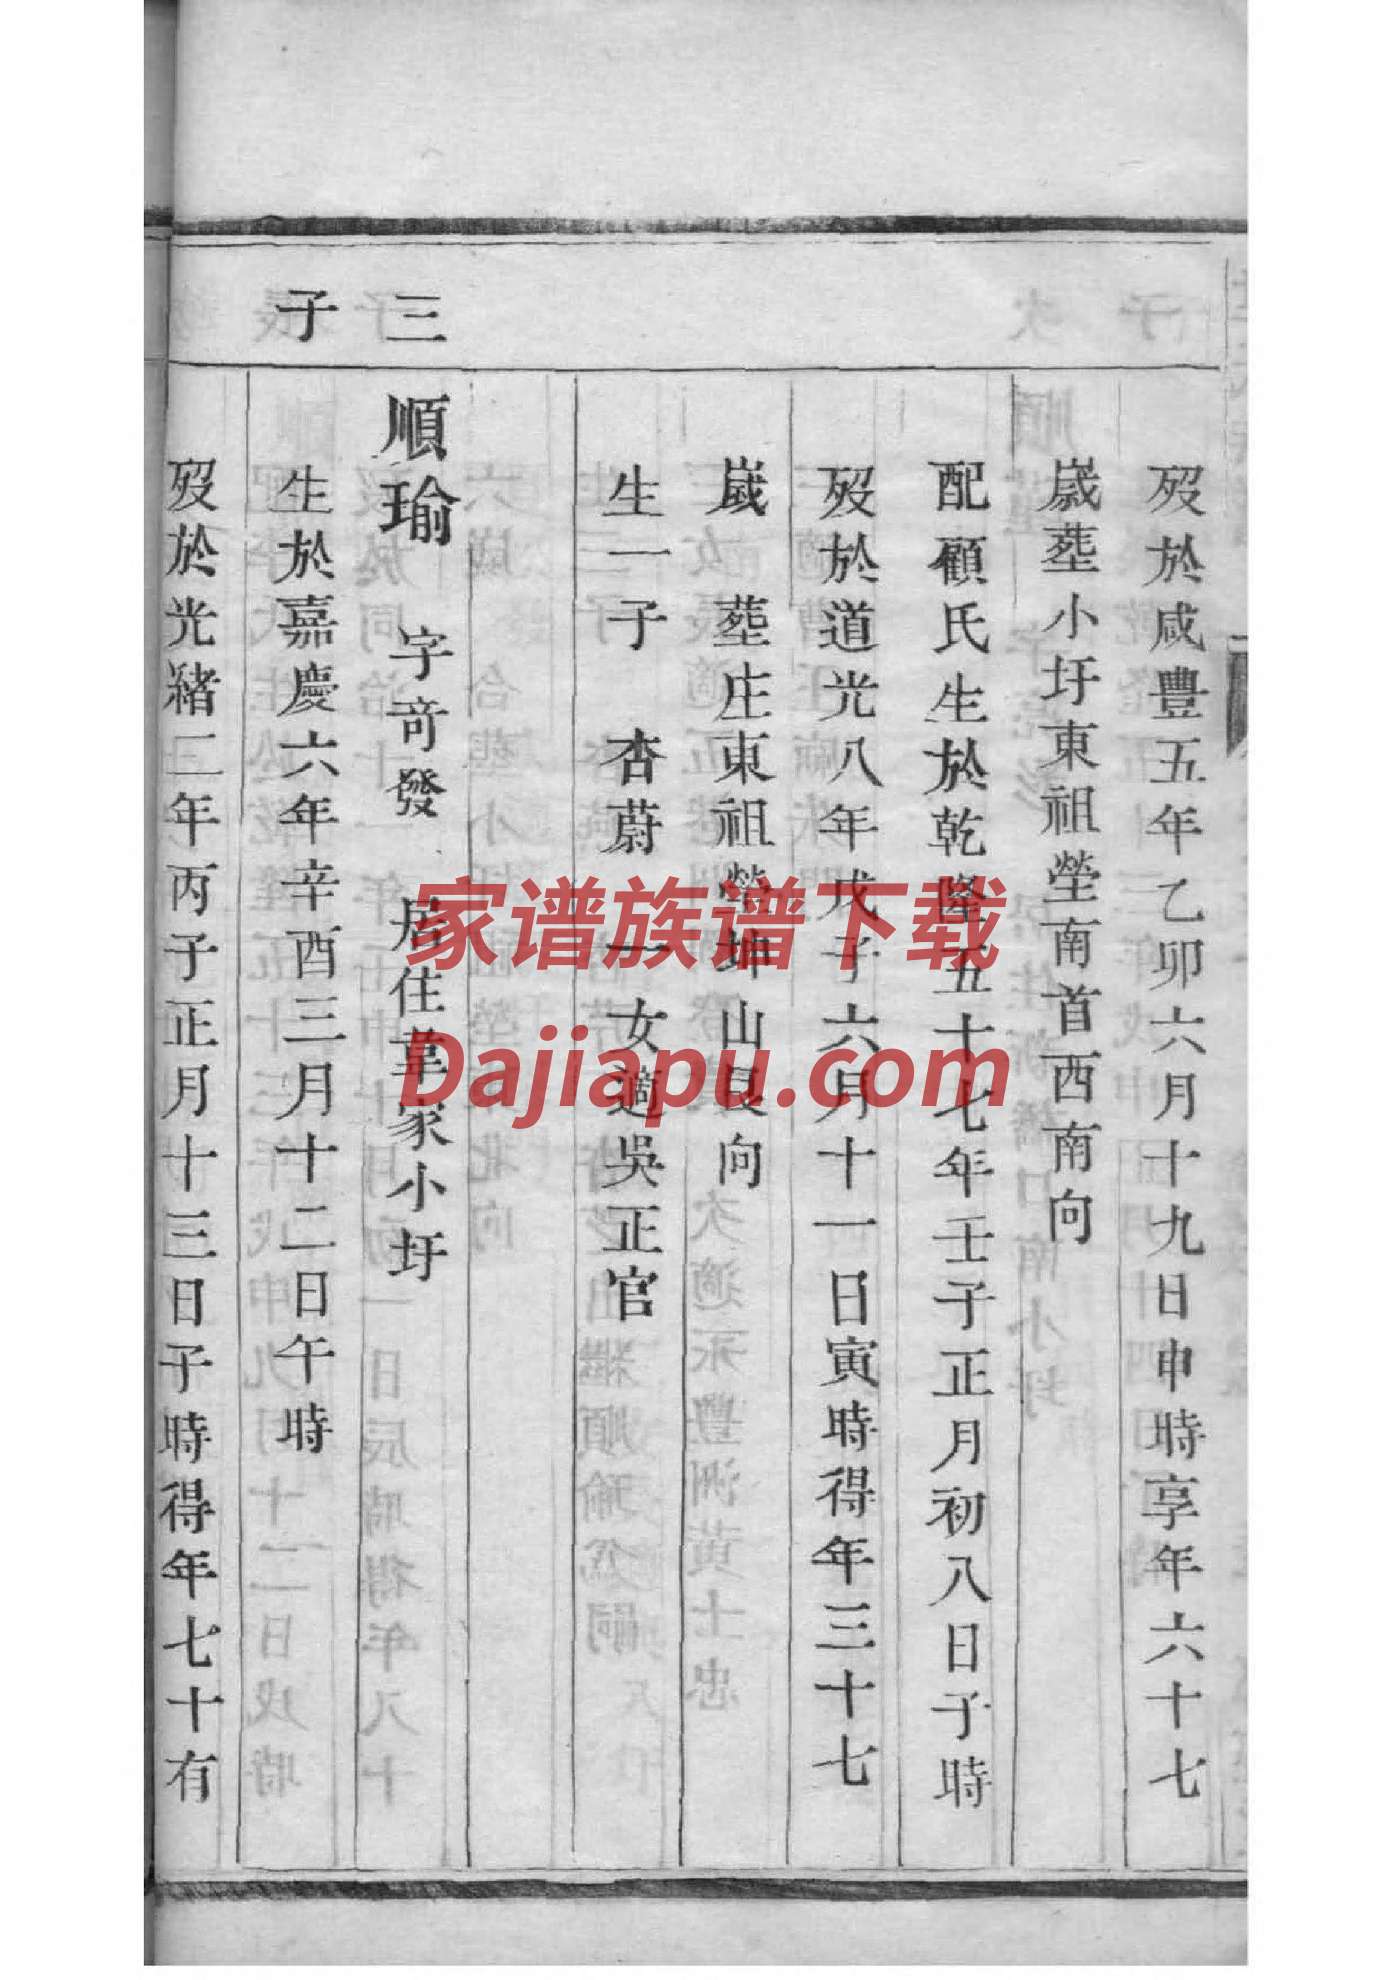 歿於咸豐五年乙卯六月十九日申時享年六十七
歲塟小圩東祖塋南首西南向
配顧氏生於乾隆五十七年壬子正月初八日子時
歿於道光八年戊子六月十一日寅時得年三十七
歲 塟庄東祖塋坤山艮向
生一子 杏蔚 一女適吳正官
三 順瑜 字奇發 居住葦家小圩
子 生於嘉慶六年辛酉三月十二日午時
歿於光緒二年丙子正月十三日子時得年七十有
家谱族谱下载
Dajiapu.com